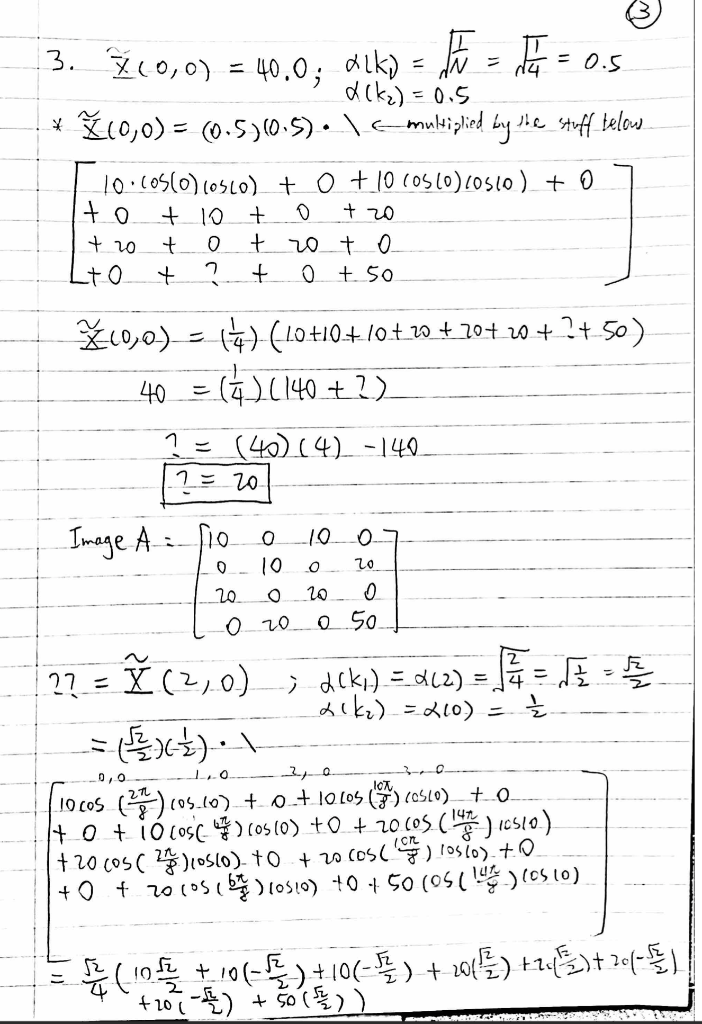 ③
3. X̃(0,0) = 40.0; α(k₁) = √(1/N) = √(1/4) = 0.5
α(k₂) = 0.5
* X̃(0,0) = (0.5)(0.5) · \ ← multiplied by the stuff below
[ 10·cos(0)cos(0) + 0 + 10cos(0)cos(0) + 0
+ 0 + 10 + 0 + 20
+ 20 + 0 + 20 + 0
+ 0 + ? + 0 + 50 ]
X̃(0,0) = (1/4)(10+10+10+20+20+20+?+50)
40 = (1/4)(140 + ?)
? = (40)(4) - 140
? = 20
Image A = [ 10 0 10 0
0 10 0 20
20 0 20 0
0 20 0 50 ]
?? = X̃(2,0) ; α(k₁) = α(2) = √(2/4) = √(1/2) = √2/2
α(k₂) = α(0) = 1/2
= (√2/2)(1/2) · \
0,0 1,0 2,0 3,0
[ 10cos(2π/8)cos(0) + 0 + 10cos(10π/8)cos(0) + 0
+ 0 + 10cos(6π/8)cos(0) + 0 + 20cos(14π/8)cos(0)
+ 20cos(2π/8)cos(0) + 0 + 20cos(10π/8)cos(0) + 0
+ 0 + 20cos(6π/8)cos(0) + 0 + 50cos(14π/8)cos(0) ]
= √2/4 (10 √2/2 + 10(-√2/2) + 10(-√2/2) + 20(√2/2) + 20(√2/2) + 20(-√2/2)
+ 20(-√2/2) + 50(√2/2))